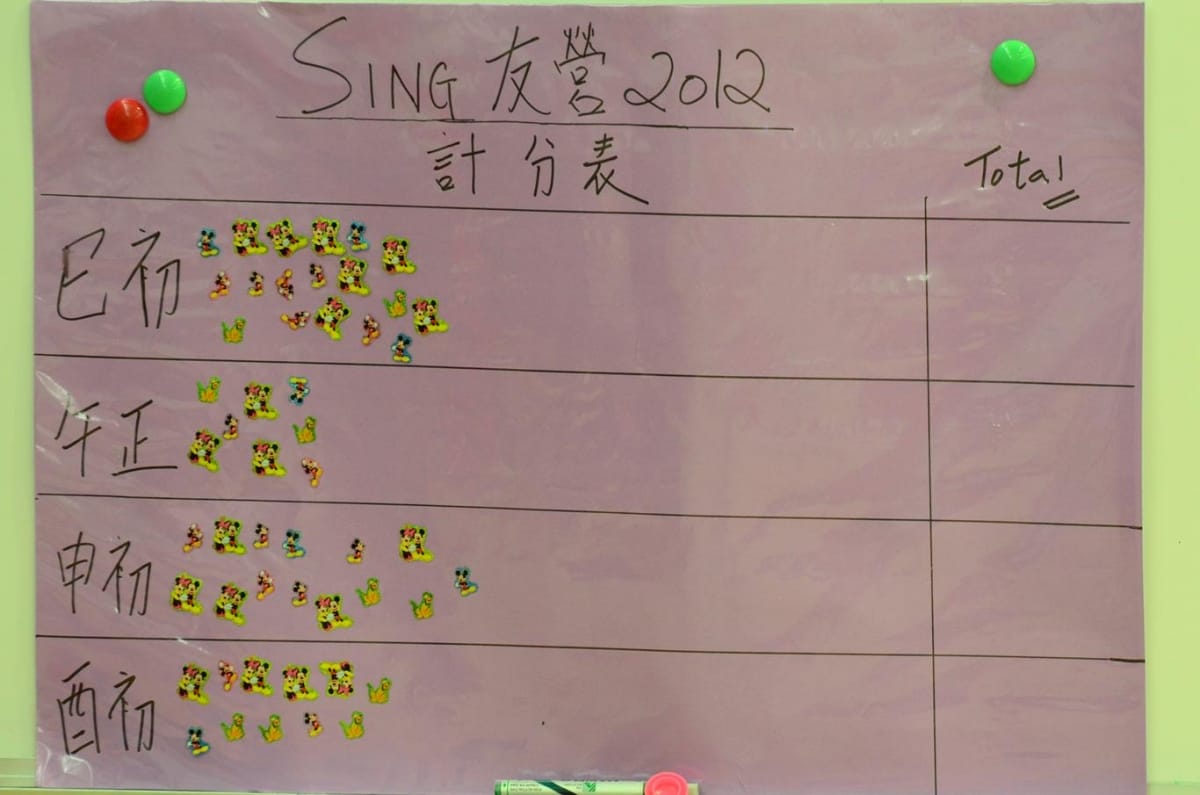 SING 友營 2012
計分表
Total
巳初
午正
申初
酉初